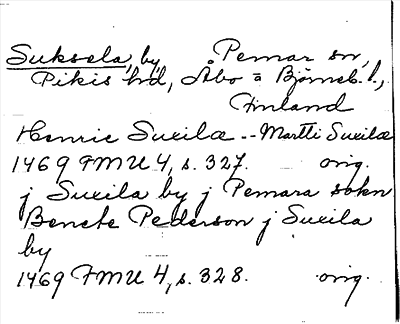 Suksela, by, Pemar sn,
Pikis hrd, Åbo o Björneb. l.,
Finland
Henric Suxilæ -- Martti Suxilæ
1469 FMU 4, s. 327. orig.
j Suxila by j Pemara sokn
Bencte Pederson j Suxila
by
1469 FMU 4, s. 328. orig.